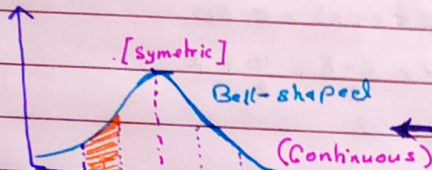 [Symetric]
Bell-shaped
(Continuous)